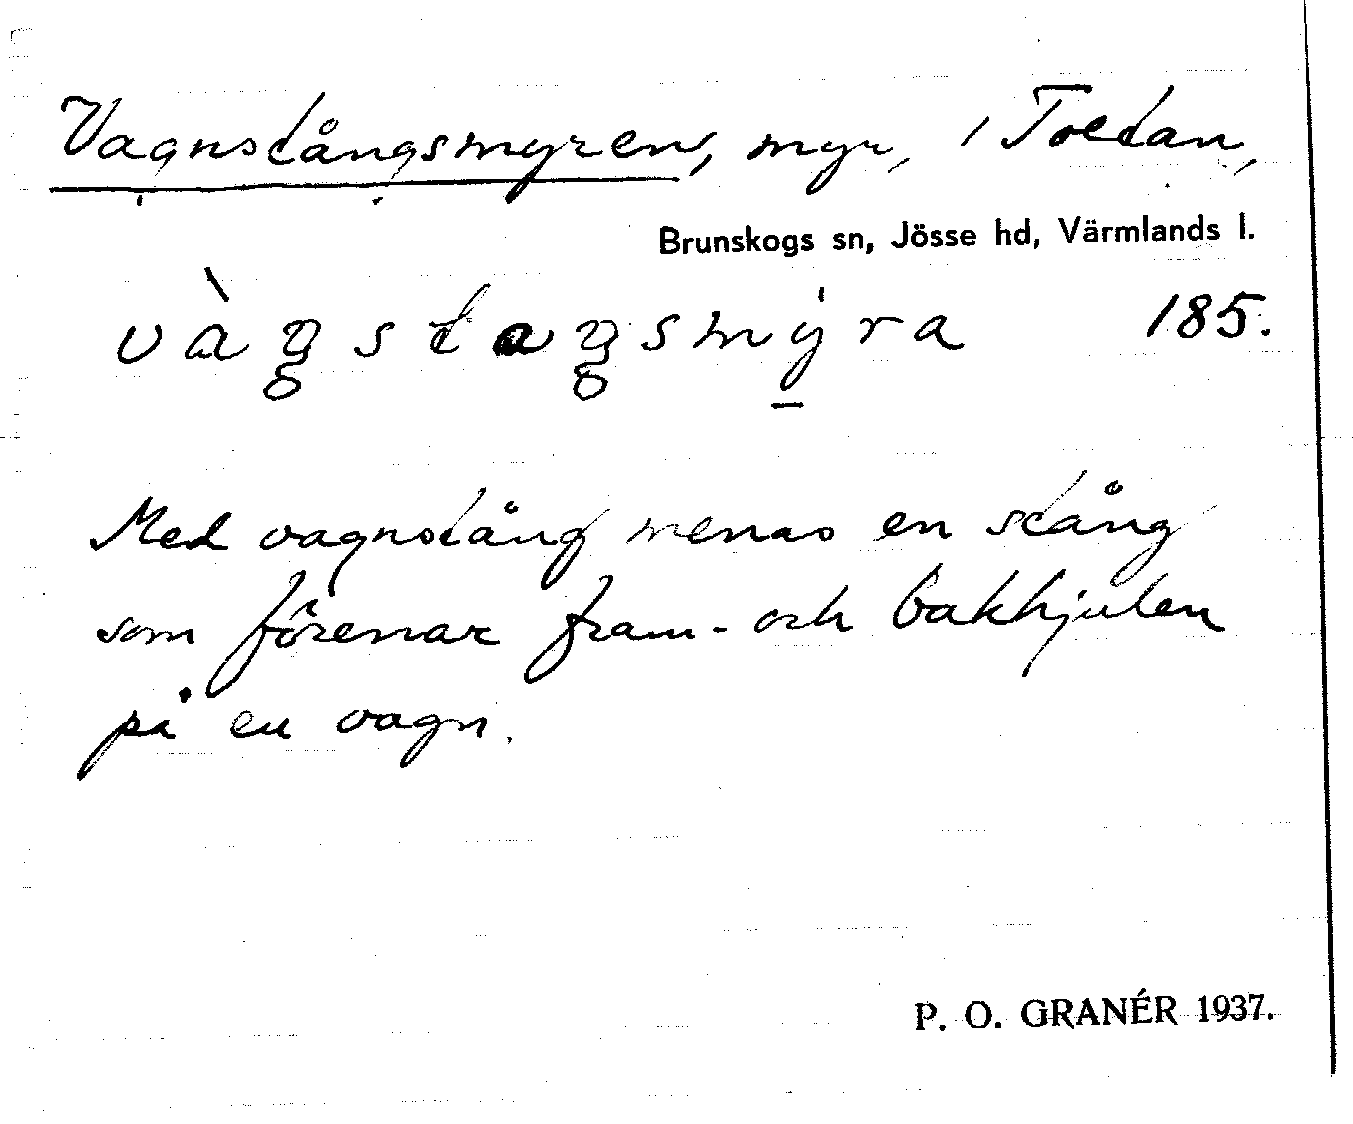 Vagnstångsmyren, myr, i Toltan,
Brunskogs sn, Jösse hd, Värmlands l.
185.
Med vagnstång menas en stång
som förenar fram- och bakhjulen
på en vagn.
P. O. GRANÉR 1937.